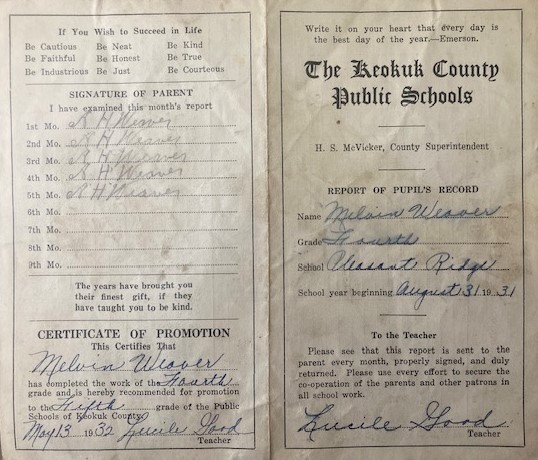 If You Wish to Succeed in Life
Be Cautious Be Neat Be Kind
Be Faithful Be Honest Be True
Be Industrious Be Just Be Courteous
SIGNATURE OF PARENT
I have examined this month's report
1st Mo. A H Weaver
2nd Mo. A H Weaver
3rd Mo. A H Weaver
4th Mo. A H Weaver
5th Mo. A H Weaver
6th Mo.
7th Mo.
8th Mo.
9th Mo.
The years have brought you
their finest gift, if they
have taught you to be kind.
CERTIFICATE OF PROMOTION
This Certifies That
Melvin Weaver
has completed the work of the Fourth
grade and is hereby recommended for promotion
to the Fifth grade of the Public
Schools of Keokuk County.
May 13 1932 Lucile Good
Teacher
Write it on your heart that every day is
the best day of the year.—Emerson.
The Keokuk County
Public Schools
H. S. McVicker, County Superintendent
REPORT OF PUPIL'S RECORD
Name Melvin Weaver
Grade Fourth
School Pleasant Ridge
School year beginning August 31 1931
To the Teacher
Please see that this report is sent to the
parent every month, properly signed, and duly
returned. Please use every effort to secure the
co-operation of the parents and other patrons in
all school work.
Lucile Good
Teacher